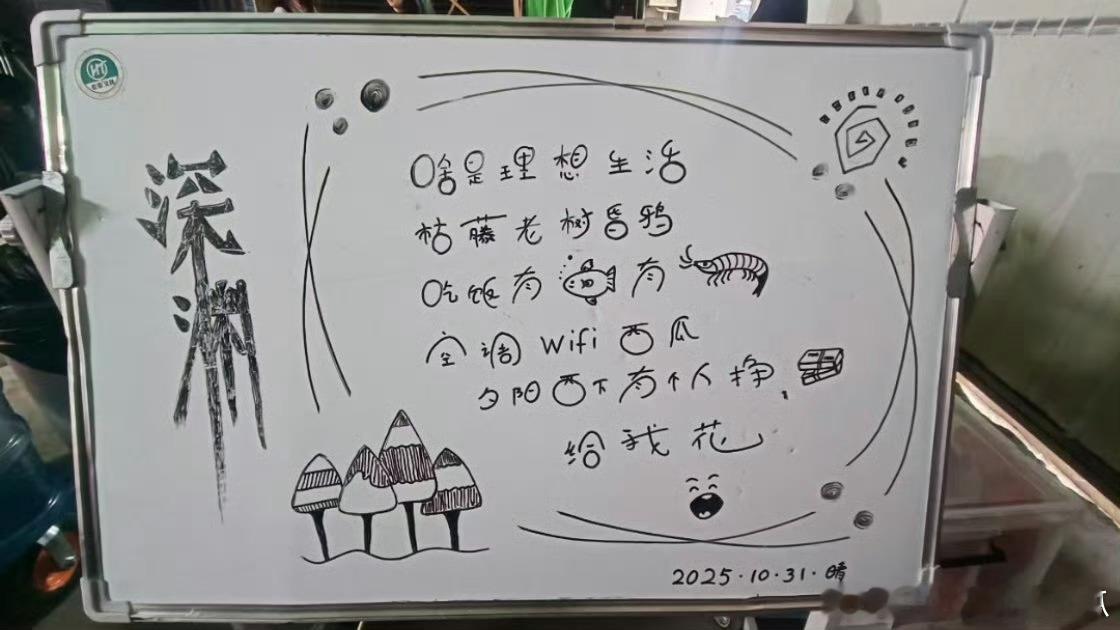 深渊
啥是理想生活
枯藤老树昏鸦
吃饭有有
空调wifi西瓜
夕阳西下有个人挣
给我花
2025·10·31·晴